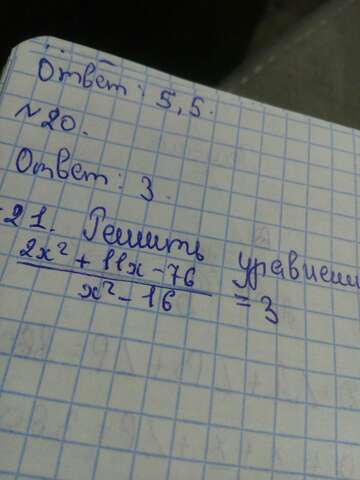 Ответ: 5,5.
N20.
Ответ: 3.
21. Решить уравнени
2x² + 11x - 76
x² - 16
= 3